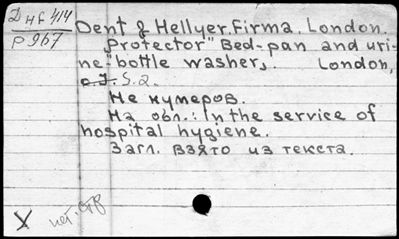 Dнf 414
P 967
Dent & Hellyer. Firma. London.
"Protector" Bed-pan and uri-
ne-bottle washer, London,
S.2.
Не нумеров.
На обл.: In the service of
hospital hygiene.
Загл. взято из текста.
нет.